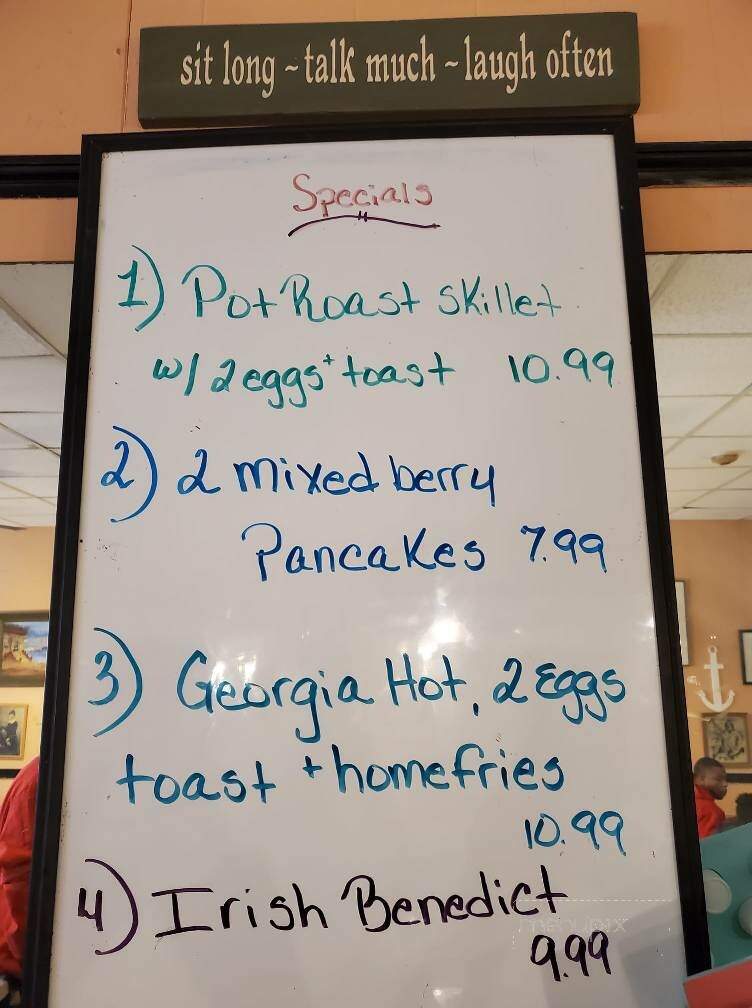 sit long ~ talk much ~ laugh often
Specials
1) Pot Roast skillet
w/ 2 eggs + toast 10.99
2) 2 mixed berry
Pancakes 7.99
3) Georgia Hot, 2 Eggs
toast + homefries
10.99
4) Irish Benedict
9.99